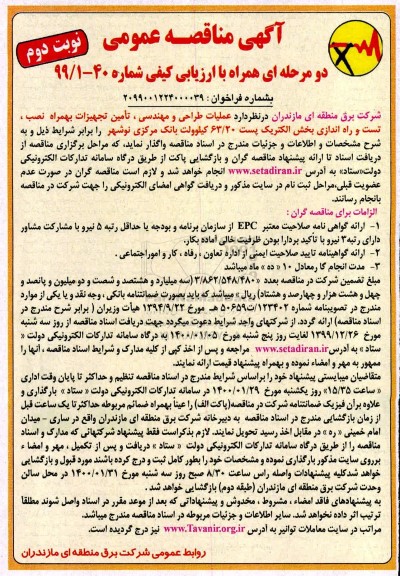 نوبت دوم
آگهی مناقصه عمومی
دو مرحله ای همراه با ارزیابی کیفی شماره ۴۰-۹۹/۱
بشماره فراخوان : ۲۰۹۹۰۰۱۲۲۴۰۰۰۰۳۹
شرکت برق منطقه ای مازندران درنظردارد عملیات طراحی و مهندسی ، تأمین تجهیزات بهمراه نصب ،
تست و راه اندازی بخش الکتریک پست ۶۳/۲۰ کیلوولت بانک مرکزی نوشهر را برابر شرایط ذیل و به
شرح مشخصات و اطلاعات و جزئیات مندرج در اسناد مناقصه واگذار نماید، که مراحل برگزاری مناقصه از
دریافت اسناد تا ارائه پیشنهاد مناقصه گران و بازگشایی پاکت از طریق درگاه سامانه تدارکات الکترونیکی
دولت«ستاد» به آدرس www.setadiran.ir انجام خواهد شد و لازم است مناقصه گران در صورت عدم
عضویت قبلی،مراحل ثبت نام در سایت مذکور و دریافت گواهی امضای الکترونیکی را جهت شرکت در مناقصه
بانجام رسانند.
الزامات برای مناقصه گران :
۱- ارائه گواهی نامه صلاحیت معتبر EPC از سازمان برنامه و بودجه یا حداقل رتبه ۵ نیرو با مشارکت مشاور
دارای رتبه۳ نیرو با تأکید بردارا بودن ظرفیت خالی آماده بکار.
۲- ارائه گواهینامه تایید صلاحیت ایمنی از اداره تعاون ، رفاه ، کار و اموراجتماعی .
۳- مدت انجام کا رمعادل ۱۰ « ده » ماه میباشد
مبلغ تضمین شرکت در مناقصه بعدد «۳/۸۶۲/۵۴۸/۴۸۰(سه میلیارد و هشتصد و شصت و دو میلیون و پانصد و
چهل و هشت هزار و چهارصد و هشتاد) ریال» میباشد که باید بصورت ضمانتنامه بانکی ، وجه نقد و یا یکی از موارد
مندرج در تصویبنامه شماره ۱۲۳۴۰۲/ت۵۰۶۵۹ هـ مورخ ۹۴/۹/۲۲ هیأت وزیران ( برابر شرح مندرج در
اسناد مناقصه) ارائه گردد. از شرکتهای واجد شرایط دعوت میگردد جهت دریافت اسناد مناقصه از روز سه شنبه
مورخ ۱۳۹۹/۱۲/۲۶ لغایت روز پنج شنبه مورخ ۱۴۰۰/۰۱/۰۵ به درگاه سامانه تدارکات الکترونیکی دولت «
ستاد » به آدرس www.setadiran.ir مراجعه و پس از اخذ کپی از کلیه مدارک و شرایط اسناد مناقصه ، آنها را
ممهور به مهر و امضاء نموده و بهمراه پیشنهاد قیمت ارائه نمایند.
متقاضیان میبایستی پیشنهاد خود را براساس شرایط مندرج در اسناد مناقصه تنظیم و حداکثر تا پایان وقت اداری
« ساعت ۱۵/۳۵ روز یکشنبه مورخ ۱۴۰۰/۰۱/۲۹ در سامانه تدارکات الکترونیکی دولت « ستاد » بارگذاری و
علاوه برآن فیزیک ضمانتنامه شرکت در مناقصه(پاکت الف) را عیناً بهمراه ضمائم مربوطه حداکثر تا یک ساعت قبل
از زمان بازگشایی مندرج در اسناد مناقصه به دبیرخانه شرکت برق منطقه ای مازندران واقع در ساری - میدان
امام خمینی « ره » در مقابل اخذ رسید تحویل نمایند. لازم بذکراست فقط پیشنهاد شرکتهائی که مدارک و اسناد
مناقصه را از طریق درگاه سامانه تدارکات الکترونیکی دولت « ستاد » دریافت و پس از تکمیل ، مهر و امضاء
برروی سایت مذکور بارگذاری نموده و مشخصات خود را بطور کامل ثبت و درج کرده باشند مورد قبول و بازگشایی
خواهد شدکلیه پیشنهادات واصله راس ساعت ۸/۳۰ صبح روز سه شنبه مورخ ۱۴۰۰/۰۱/۳۱ در محل سالن
وحدت شرکت برق منطقه ای مازندران (طبقه دوم) بازگشایی خواهد شد .
به پیشنهادهای فاقد امضاء ، مشروط ، مخدوش و پیشنهاداتی که بعد از موعد مقرر در اسناد واصل شوند مطلقا
ترتیب اثر داده نخواهد شد. سایر اطلاعات و جزئیات مربوطه در اسناد مناقصه مندرج میباشد.
مراتب در سایت معاملات توانیر به آدرس www.Tavanir.org.ir نیز درج گردیده است.
روابط عمومی شرکت برق منطقه ای مازندران